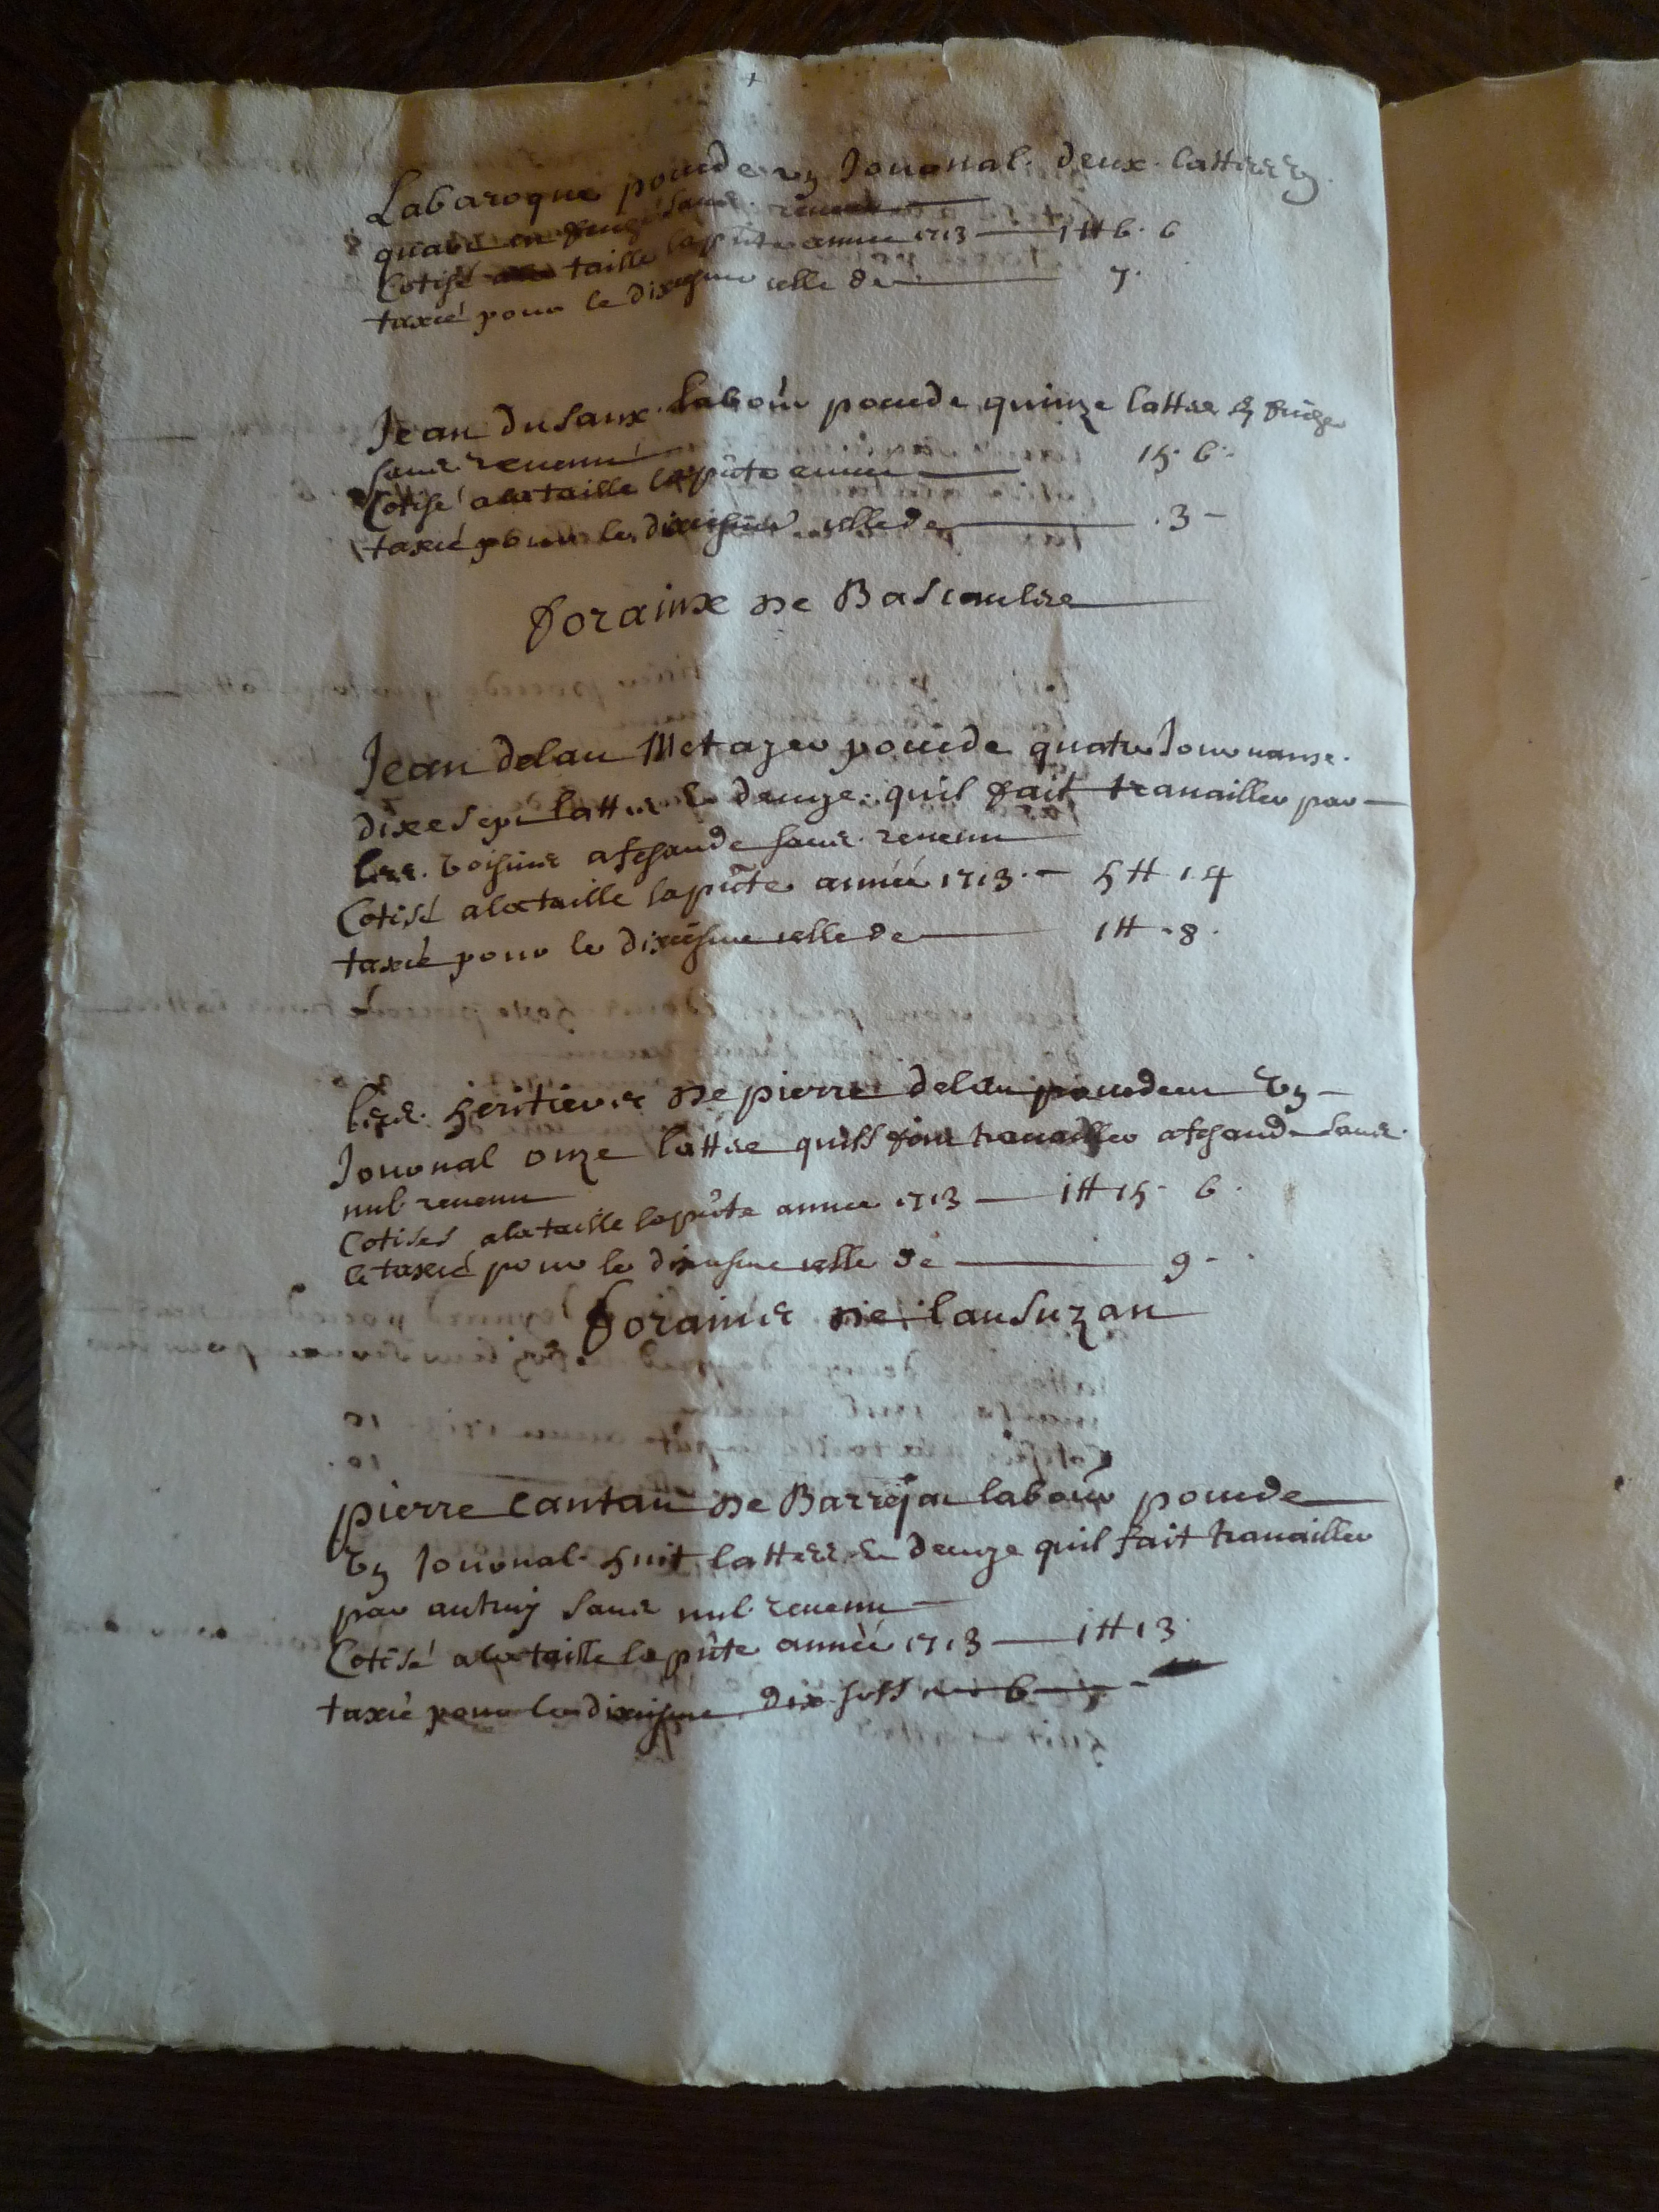 Labaroque poucede un Journal deux lattes
sans revenu
Cotisé taille la pñte année 1713 — 1 tt 6. 6
taxcé pour le dixiesme celle de — 7.
Jean dusaux labour poucede quinze lattes
sans revenu
Cotisé a la taille la pñte année — 15. 6.
taxcé pour le dixiesme celle de — . 3 —
foraines De Bascaules
Jean delau Metayer poucede quatre Journaux
dixe sept lattes & demye quil fait travailler par —
les voisins a fesande sans revenu
Cotisé a la taille la pñte année 1713. — 5 tt 14
taxcé pour le dixiesme celle de — 1 tt . 8 .
les heritiers De pierre delau poucedent un —
Journal onze lattes quils font travailler a fesande sans
nul revenu
Cotisés a la taille la pñte année 1713 — 1 tt 15 . 6 .
et taxcé pour le dixiesme celle de — 9 — .
foraines De lausuzan
pierre Cantau De Barrejac labour poucede
un Journal huit lattes & demye quil fait travailler
par autruy sans nul revenu —
Cotisé a la taille la pñte année 1713 — 1 tt 13
taxcé pour le dixiesme dix solls